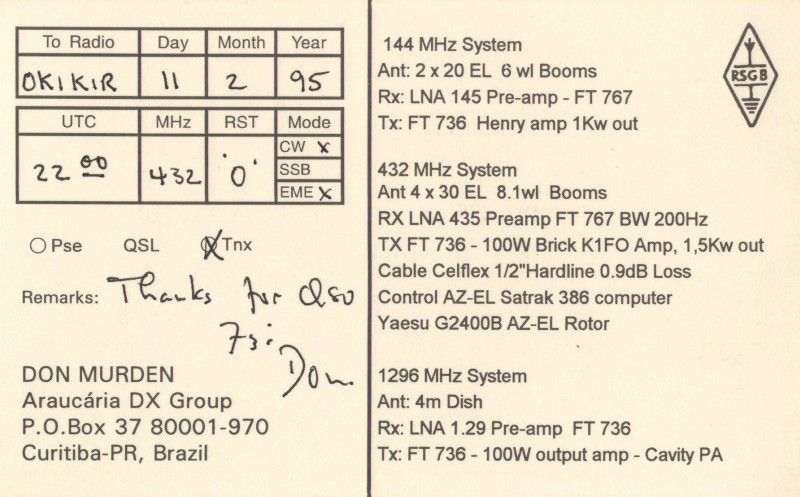 To Radio Day Month Year
OK1KIR 11 2 95
UTC MHz RST Mode
22 00 432 'O' CW x
SSB
EME x
Pse QSL Tnx
Remarks: Thanks for QSO
73s. Don.
DON MURDEN
Araucária DX Group
P.O.Box 37 80001-970
Curitiba-PR, Brazil
144 MHz System
Ant: 2 x 20 EL 6 wl Booms
Rx: LNA 145 Pre-amp - FT 767
Tx: FT 736 Henry amp 1Kw out
432 MHz System
Ant 4 x 30 EL 8.1wl Booms
RX LNA 435 Preamp FT 767 BW 200Hz
TX FT 736 - 100W Brick K1FO Amp, 1,5Kw out
Cable Celflex 1/2"Hardline 0.9dB Loss
Control AZ-EL Satrak 386 computer
Yaesu G2400B AZ-EL Rotor
1296 MHz System
Ant: 4m Dish
Rx: LNA 1.29 Pre-amp FT 736
Tx: FT 736 - 100W output amp - Cavity PA
RSGB